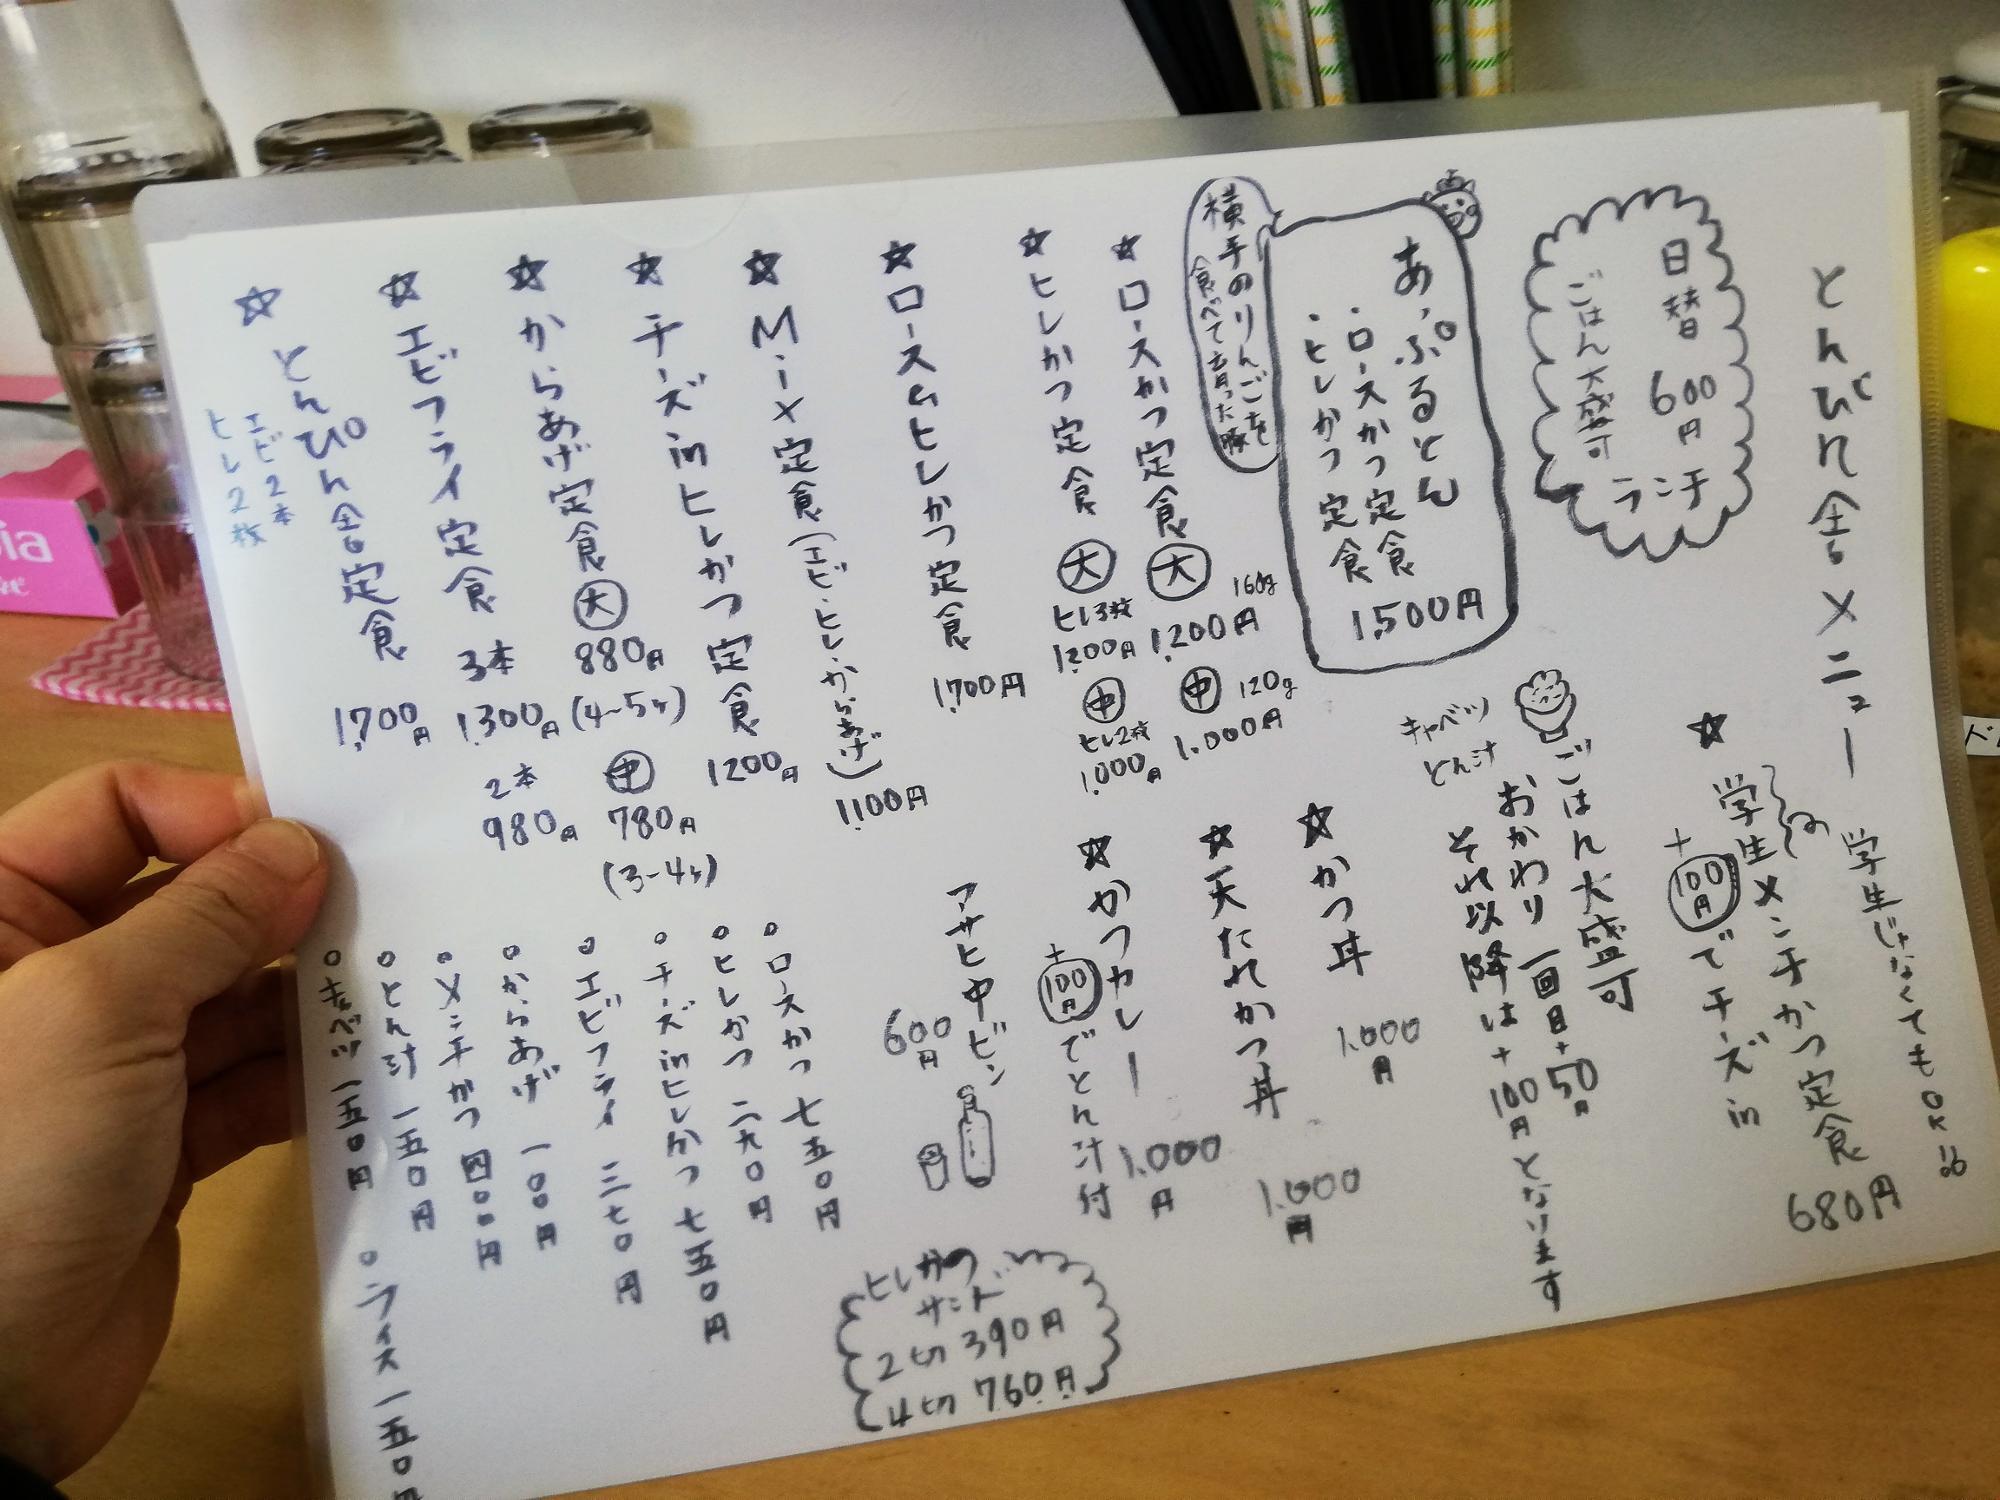 とんぴん舎メニュー
日替
600円
ランチ
ごはん大盛可
学生じゃなくてもOK!!
学生メンチかつ定食 680円
+100円でチーズin
あっぷるとん
・ロースかつ定食
・ヒレかつ定食
1,500円
横手のりんごを
食べて育った豚
ごはん大盛可
おかわり一回目+50円
それ以降は+100円となります
キャベツ
とん汁
ロースかつ定食 大 160g 1,200円 中 120g 1,000円
ヒレかつ定食 大 ヒレ3枚 1,200円 中 ヒレ2枚 1,000円
ロース&ヒレかつ定食 1,700円
Mix定食(エビ・ヒレ・からあげ) 1100円
チーズinヒレかつ定食 1200円
からあげ定食 大 880円 (4~5ヶ) 中 780円 (3~4ヶ)
エビフライ定食 3本 1,300円 2本 980円
とんぴん舎定食 1,700円
エビ2本
ヒレ2枚
かつ丼 1,000円
天たれかつ丼 1,000円
かつカレー 1,000円
+100円でとん汁付
アサヒ中ビン
600円
ロースかつ 七五〇円
ヒレかつ 二九〇円
チーズinヒレかつ 七五〇円
エビフライ 三七〇円
からあげ 一〇〇円
メンチかつ 四〇〇円
とん汁 一五〇円
キャベツ 一五〇円
ライス 一五〇円
ヒレかつ
サンド
2切 390円
4切 760円